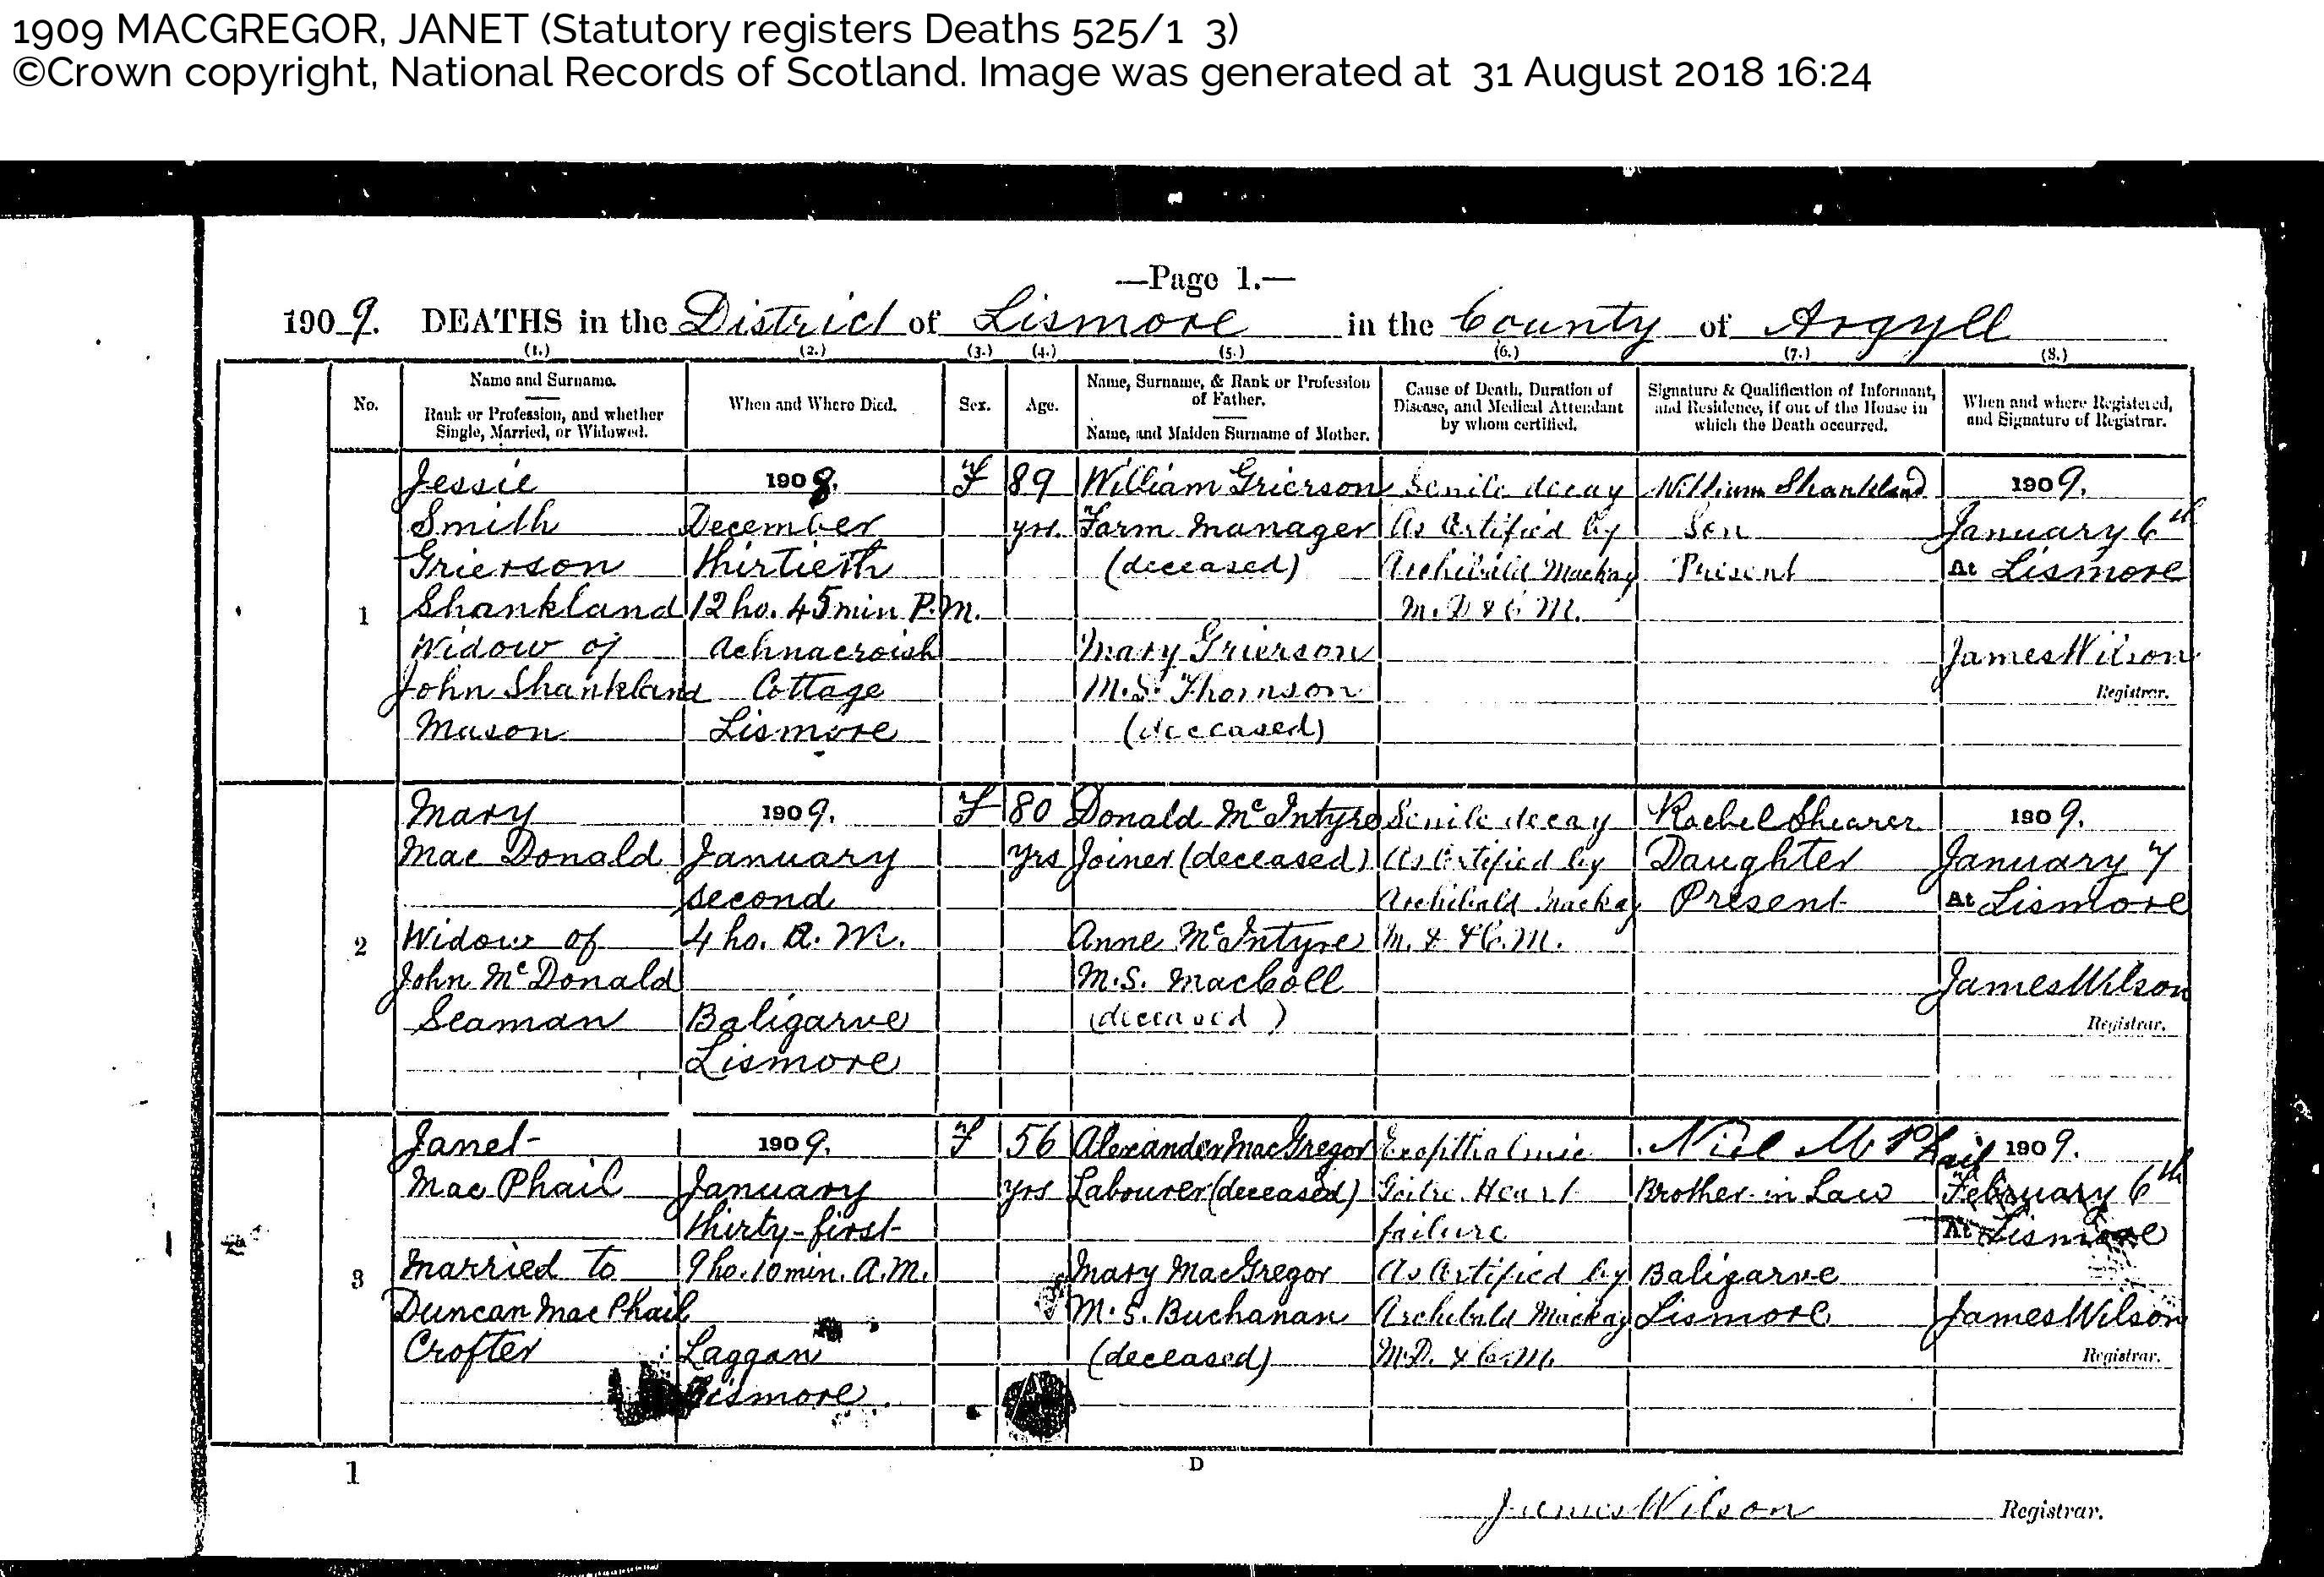 1909 MACGREGOR, JANET (Statutory registers Deaths 525/1 3)
©Crown copyright, National Records of Scotland. Image was generated at 31 August 2018 16:24
—Page 1.—
1909. DEATHS in the District of Lismore in the County of Argyll
(1.) (2.) (3.) (4.) (5.) (6.) (7.) (8.)
No.
Name and Surname.
Rank or Profession, and whether
Single, Married, or Widowed.
When and Where Died.
Sex.
Age.
Name, Surname, & Rank or Profession
of Father.
Name, and Maiden Surname of Mother.
Cause of Death, Duration of
Disease, and Medical Attendant
by whom certified.
Signature & Qualification of Informant,
and Residence, if out of the House in
which the Death occurred.
When and where Registered,
and Signature of Registrar.
1
Jessie
Smith
Grierson
Shankland
Widow of
John Shankland
Mason
1908.
December
thirtieth
12 ho. 45 min P.M.
Achnacroish
Cottage
Lismore
F
89
yrs.
William Grierson
Farm Manager
(deceased)
Mary Grierson
M.S. Thomson
(deceased)
Senile decay
As Certified by
Archibald Mackay
M.D & C.M.
William Shankland
Son
Present
1909.
January 6th
At Lismore
James Wilson
Registrar.
2
Mary
Mac Donald
Widow of
John McDonald
Seaman
1909.
January
second
4 ho. A.M.
Baligarve
Lismore
F
80
yrs
Donald McIntyre
Joiner (deceased)
Anne McIntyre
M.S. MacColl
(deceased)
Senile decay
As Certified by
Archibald Mackay
M. & & C.M.
Rachel Shearer
Daughter
Present
1909.
January 7
At Lismore
James Wilson
Registrar.
3
Janet
Mac Phail
Married to
Duncan MacPhail
Crofter
1909.
January
thirty-first
9 ho. 10 min. A.M.
Laggan
Lismore.
F
56
yrs
Alexander MacGregor
Labourer (deceased)
Mary MacGregor
M.S. Buchanan
(deceased)
Exopthalmic
Goitre Heart
failure
As Certified by
Archibald Mackay
M.D. & C.M.
Niel McPhail
Brother-in-Law
Baligarve
Lismore
1909.
February 6th
At Lismore
James Wilson
Registrar.
1
D
James Wilson Registrar.